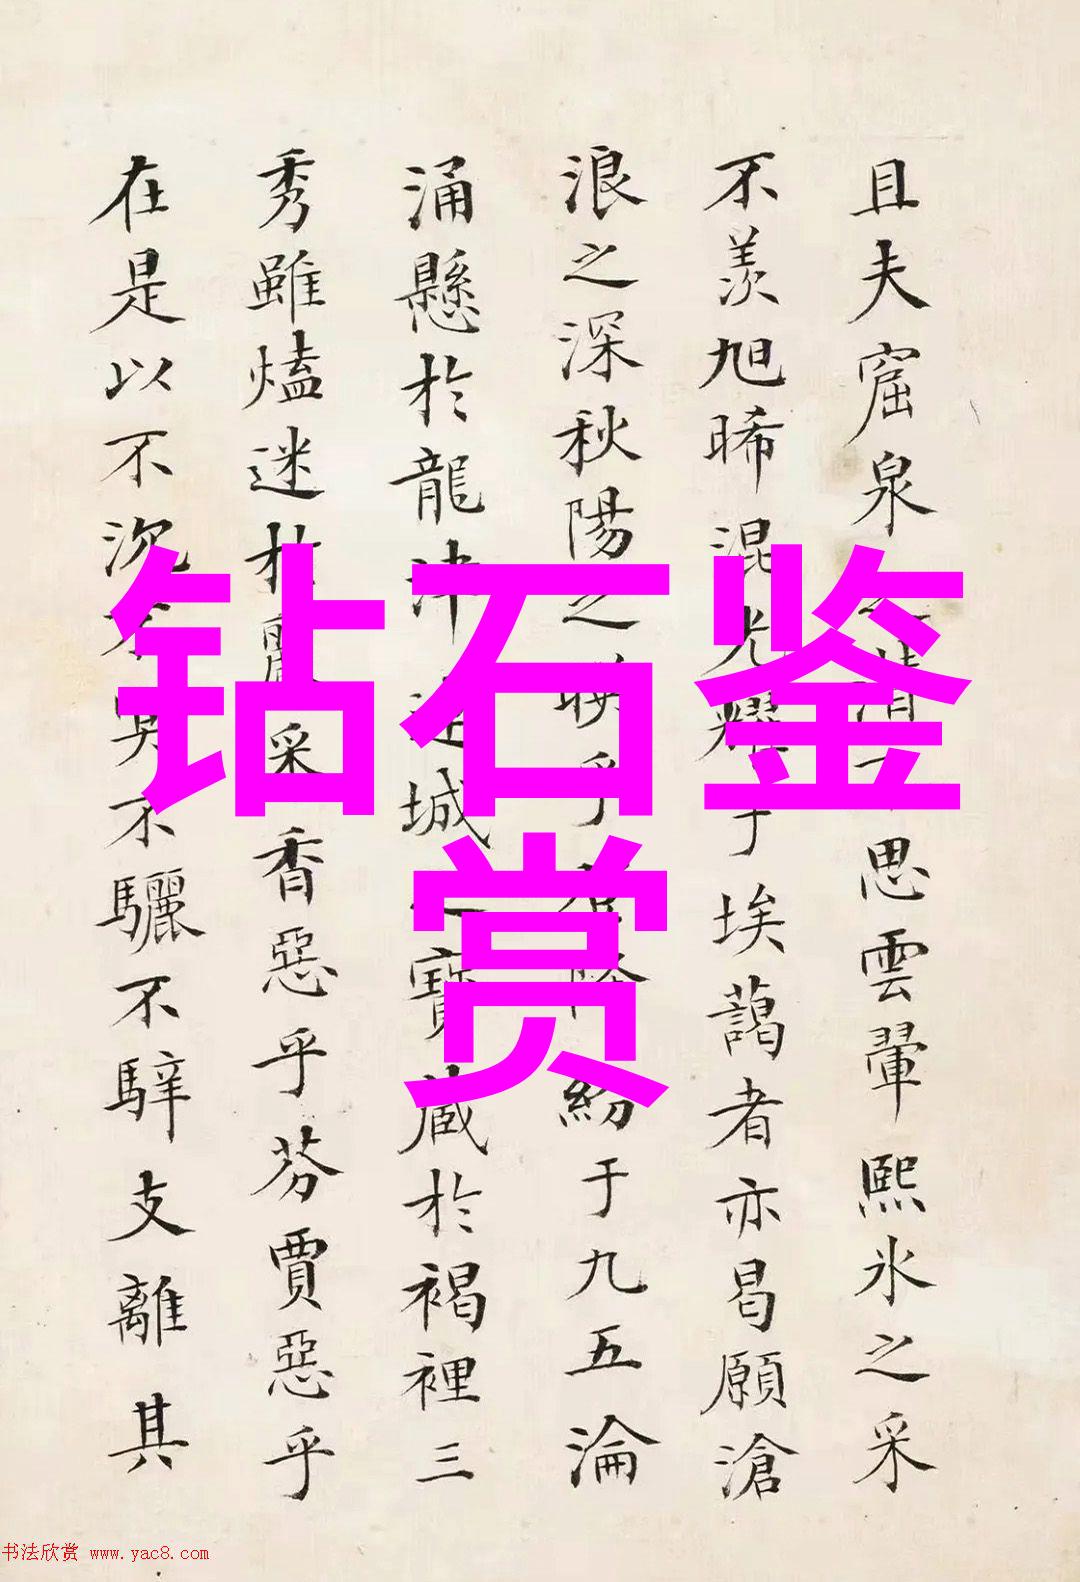 钻石鉴
赏
且夫窟泉清思雲翬熙氷之采
不羨旭晞混光耀于埃藹者亦曷願滄
浪之深秋陽之映乎降紛于九五淪
涌懸於龍津連城之寶藏於褐裡三
秀雖熆迷於采香惡乎芬賈惡乎
在是以不沉不冥不驪不騂支離其
书法欣赏 www.yac8.com